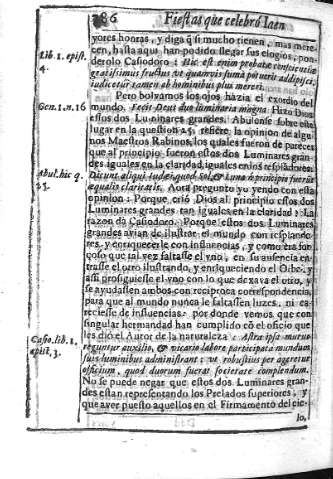 286 Fiestas que celebró Iaen
yores honras, y diga q̃ si mucho tienen, mas mere-
cen, hasta aqui han podido llegar sus elogios, pon-
Lib. 1. epist. 4.
derolo Casiodoro: Hic est enim probatæ conscientiæ
gratissimus fructus ut quamvis summa potuerit adipisci,
iudicetur tamen ab hominibus plus mereri.
Pero bolvamos los ojos hazia el exordio del
Gen. 1. n. 16
mundo. Fecit Deus duo luminaria magna. Hizo Dios
estos dos Luminares grandes. Abulense sobre este
lugar en la question 25. refiere la opinion de algu-
nos Maestros Rabinos, los quales fueron de pareces
que al principio fueron estos dos Luminares gran-
des iguales en la claridad, iguales en los resplãdores:
Abul. hic q. 25.
Dicunt aliqui Iudei quod Sol, & Luna in principio fuerũt
æqualis claritatis. Aora pregunto yo yendo con esta
opinion: Porque crió Dios al principio estos dos
Luminares grandes tan iguales en la claridad? La
razon da Casiodoro: Porque estos dos Luminares
grandes avian de ilustrar el mundo con resplando-
res, y enriquecerle con influencias, y como era for-
çoso que tal vez faltasse el vno, en su ausencia en-
trasse el otro ilustrando, y enriqueciendo el Orbe, y
assi prosiguiesse el vno con lo que dexava el otro, y
se ayudassen ambos con reciproca correspondencia,
para que al mundo nunca le faltassen luzes, ni ca-
reciesse de influencias: por donde vemos que con
singular hermandad han cumplido cõ el oficio que
Casio. lib. 1. epist. 3.
les dió el Autor de la naturaleza: Astra ipsa mutuo
reguntur auxilio, & vicario labore participata mundum
suis luminibus administrant: ut robustius perageretur
officium, quod duorum fuerat societate complendum.
No se puede negar que estos dos Luminares gran-
des estan representando los Prelados superiores, y
que aver puesto aquellos en el Firmamento del cie-
lo,